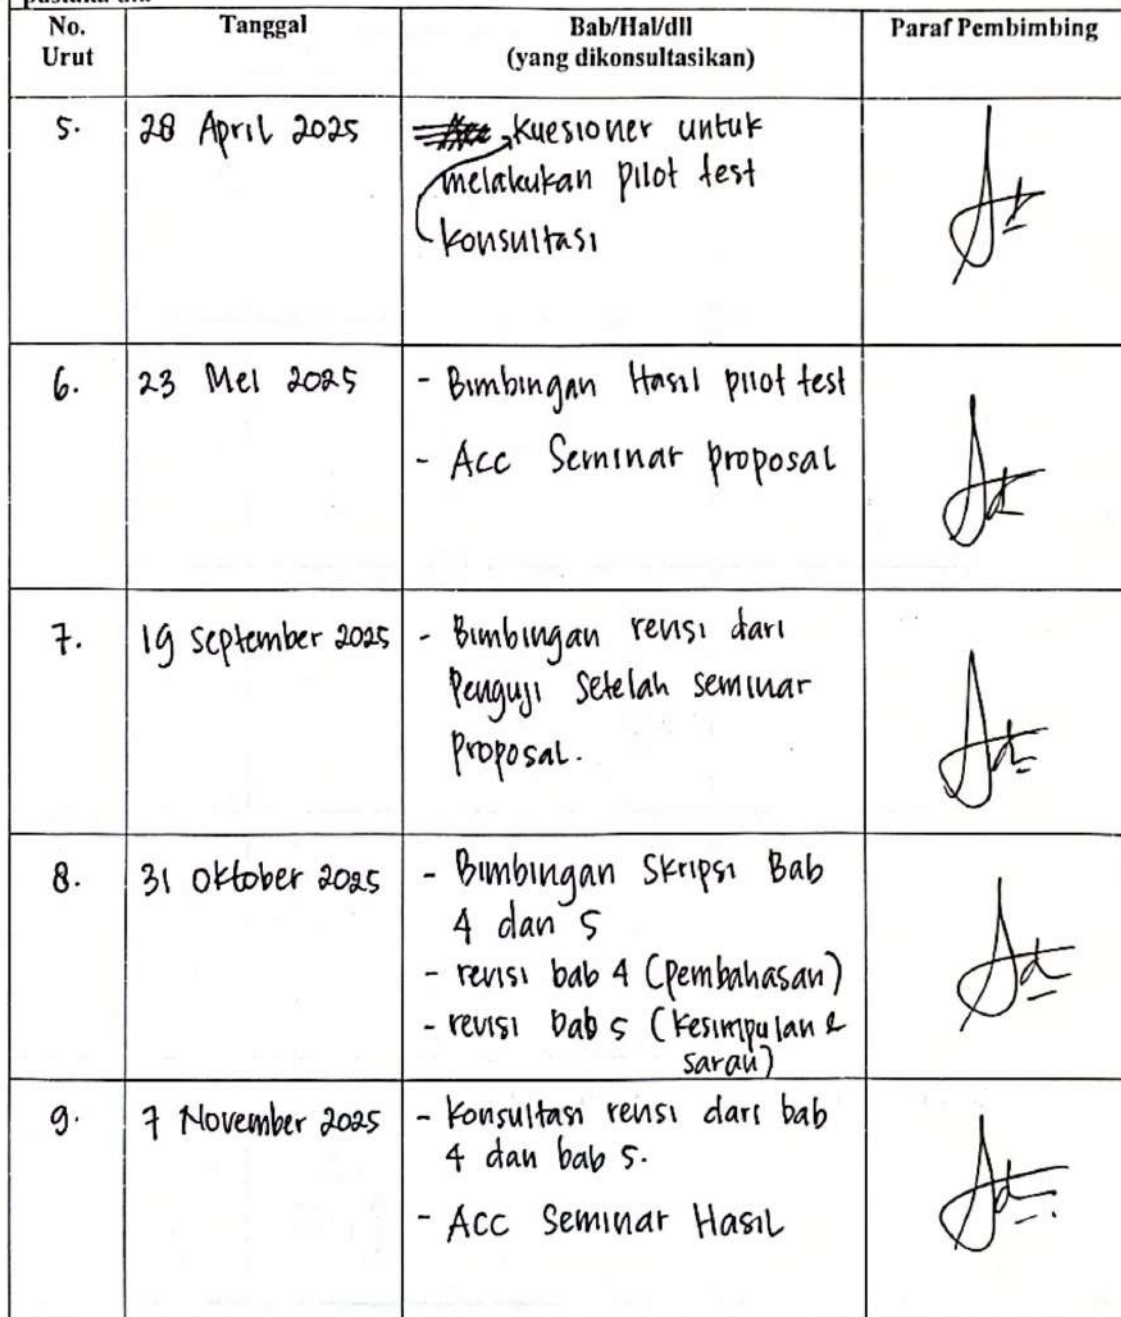 No.
Urut
Tanggal
Bab/Hal/dll
(yang dikonsultasikan)
Paraf Pembimbing
5.
28 April 2025
Kuesioner untuk
melakukan pilot test
konsultasi
6.
23 Mei 2025
- Bimbingan Hasil pilot test
- Acc Seminar proposal
7.
19 September 2025
- Bimbingan revisi dari
Penguji Setelah seminar
Proposal.
8.
31 Oktober 2025
- Bimbingan Skripsi Bab
4 dan 5
- revisi bab 4 (pembahasan)
- revisi bab 5 (Kesimpulan &
saran)
9.
7 November 2025
- Konsultasi revisi dari bab
4 dan bab 5.
- ACC Seminar Hasil